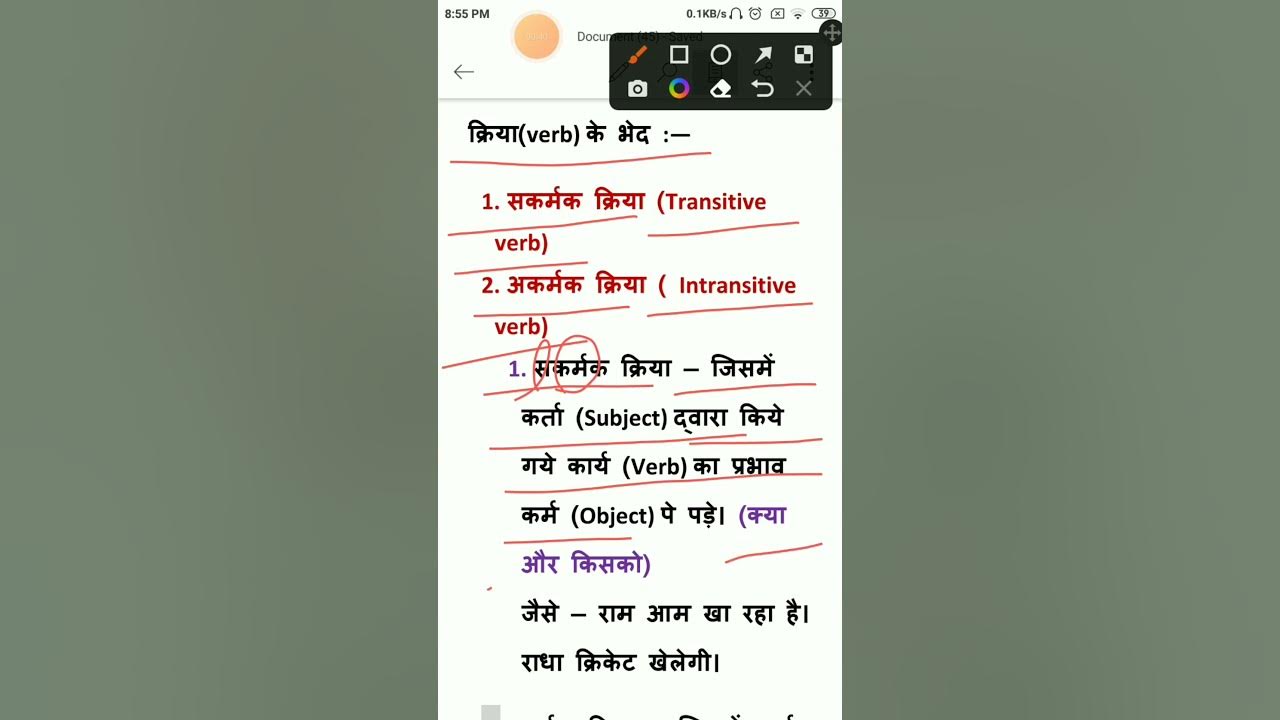 8:55 PM 0.1KB/s 39
00:40
Document (45) - Saved
क्रिया(verb) के भेद :—
1. सकर्मक क्रिया (Transitive
verb)
2. अकर्मक क्रिया ( Intransitive
verb)
1. सकर्मक क्रिया – जिसमें
कर्ता (Subject) द्वारा किये
गये कार्य (Verb) का प्रभाव
कर्म (Object) पे पड़े। (क्या
और किसको)
जैसे – राम आम खा रहा है।
राधा क्रिकेट खेलेगी।